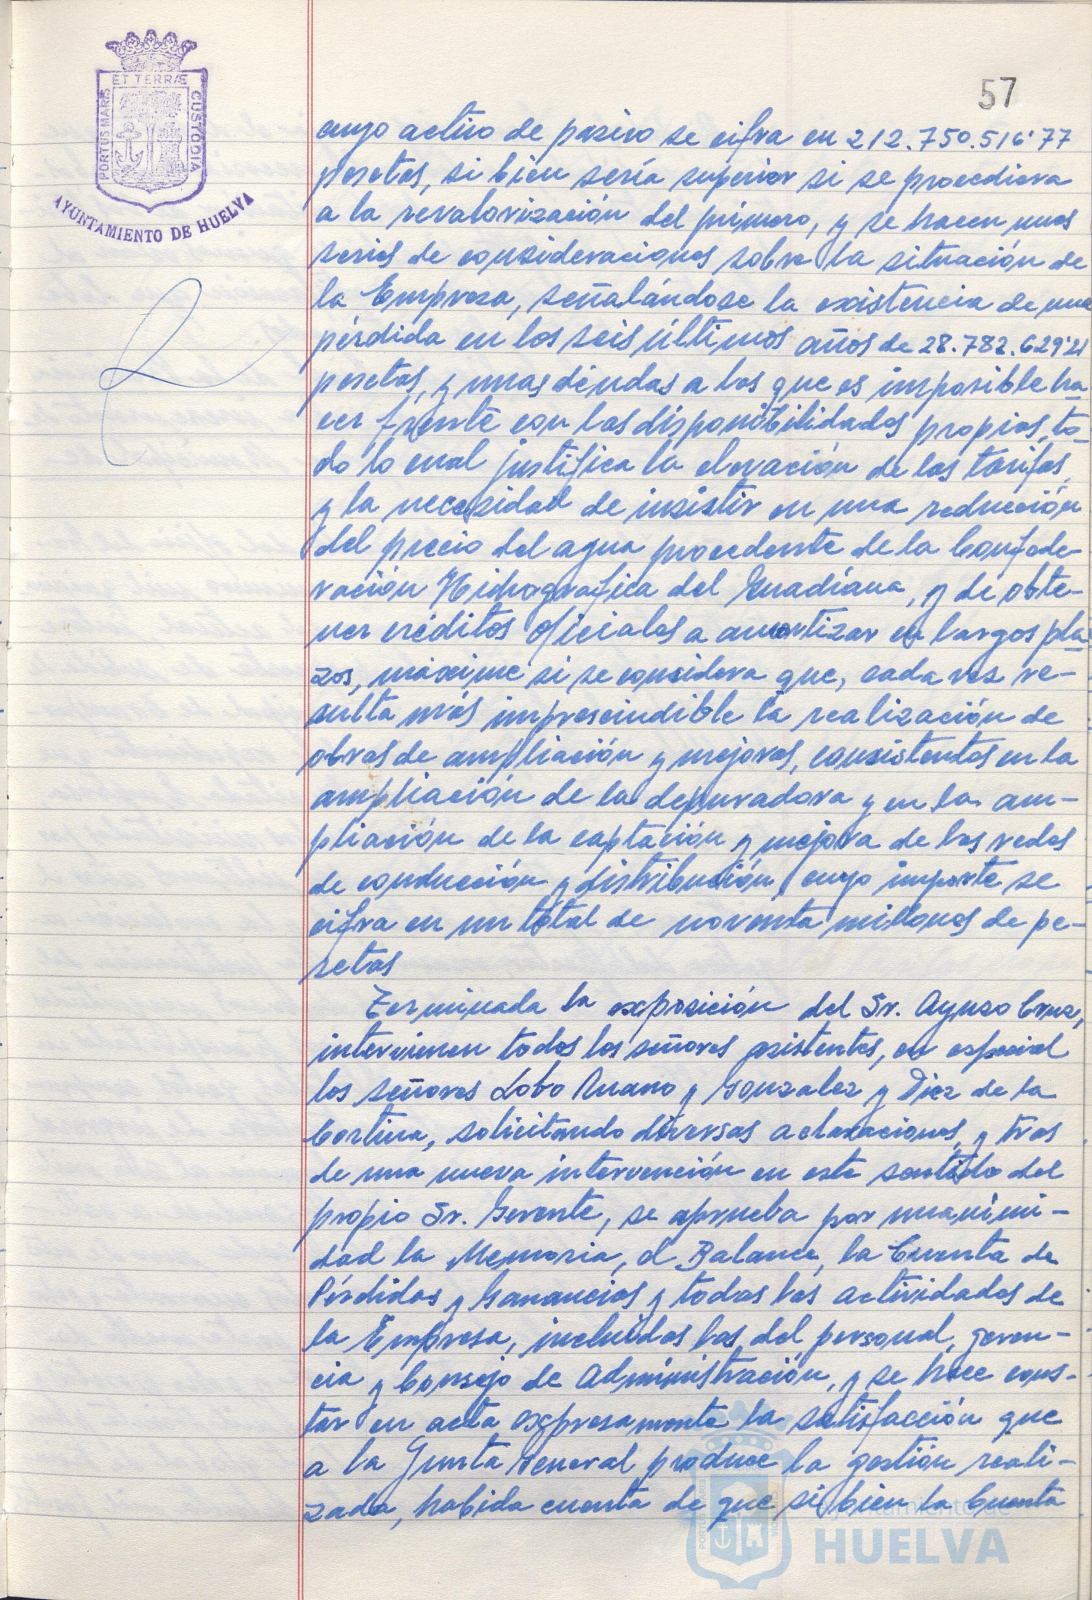 57
PORTUS MARIS ET TERRÆ CUSTODIA
AYUNTAMIENTO DE HUELVA
cuyo activo de pasivo se cifra en 212.750.516'77
pesetas, si bien sería superior si se procediera
a la revalorización del primero, y se hacen unas
series de consideraciones sobre la situación de
la Empresa, señalándose la existencia de una
pérdida en los seis últimos años de 28.782.629'21
pesetas, y unas deudas a las que es imposible ha-
cer frente con las disponibilidades propias, to-
do lo cual justifica la elevación de las tarifas,
y la necesidad de insistir en una reducción
del precio del agua procedente de la Confede-
ración Hidrografica del Guadiana, y de obte-
ner créditos oficiales a amortizar en largos pla-
zos, máxime si se considera que, cada vez re-
sulta más imprescindible la realización de
obras de ampliación y mejoras, consistentes en la
ampliación de la depuradora y en la am-
pliación de la captación y mejora de las redes
de conducción y distribución, cuyo importe se
cifra en un total de noventa millones de pe-
setas
Terminada la exposición del Sr. Ayuso Cruz,
intervienen todos los señores asistentes, en especial
los señores Lobo Ruano y Gonzalez y Diez de la
Cortina, solicitando diversas aclaraciones, y tras
de una nueva intervención en este sentido del
propio Sr. Gerente, se aprueba por unanimi-
dad la Memoria, el Balance, la Cuenta de
Pérdidas y Ganancias y todas las actividades de
la Empresa, incluidas las del personal, geren-
cia y Consejo de Administración, y se hace cons-
tar en acta expresamente la satisfacción que
a la Junta General produce la gestión reali-
zada, habida cuenta de que si bien la Cuenta
Ayuntamiento de
HUELVA